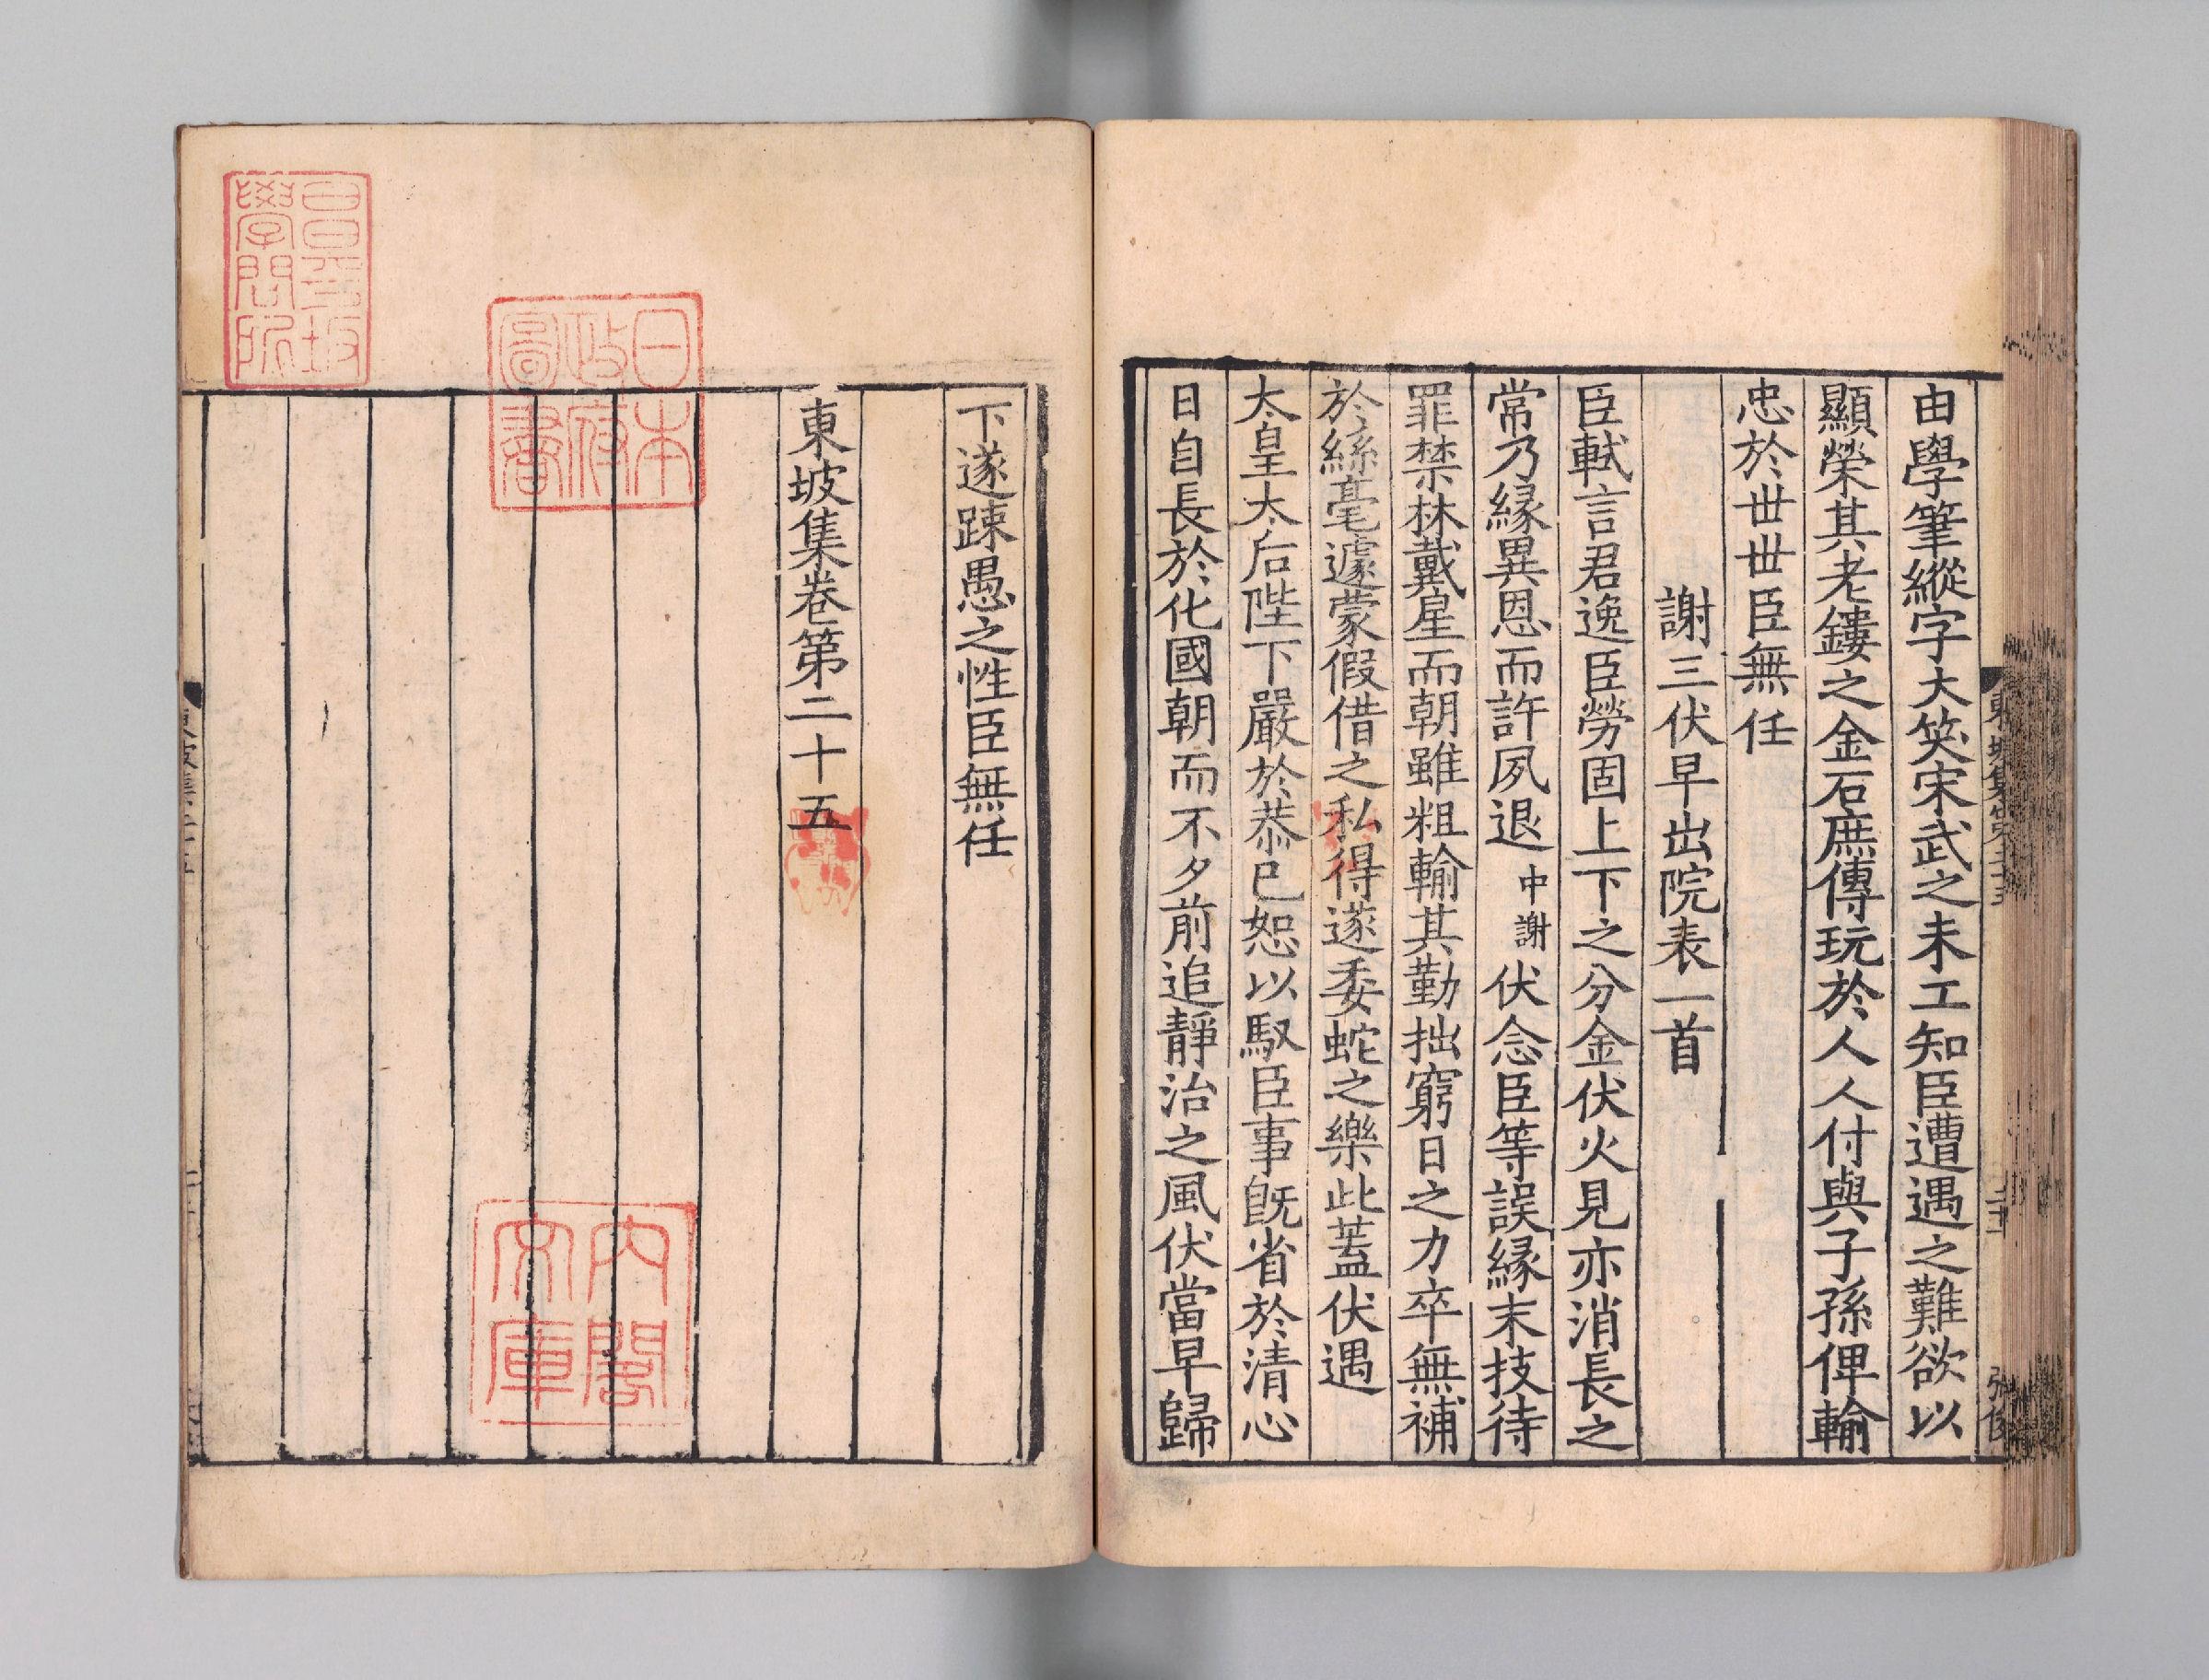 由學筆縱字大笑宋武之未工知臣遭遇之難欲以
顯榮其老鏤之金石庶傳玩於人人付與子孫俾輸
忠於丗丗臣無任
謝三伏早出院表一首
臣軾言君逸臣勞固上下之分金伏火見亦消長之
常乃緣異恩而許夙退中謝伏念臣等誤緣末技待
罪禁林戴星而朝雖粗輸其勤拙窮日之力卒無補
於絲毫遽蒙假借之私得遂委蛇之樂此蓋伏遇
太皇太后陛下嚴於恭已恕以馭臣事旣省於清心
日自長於化國朝而不夕前追靜治之風伏當早歸
下遂踈愚之性臣無任
東坡集卷第二十五
日本政府圖書
昌平坂學問所
內閣文庫